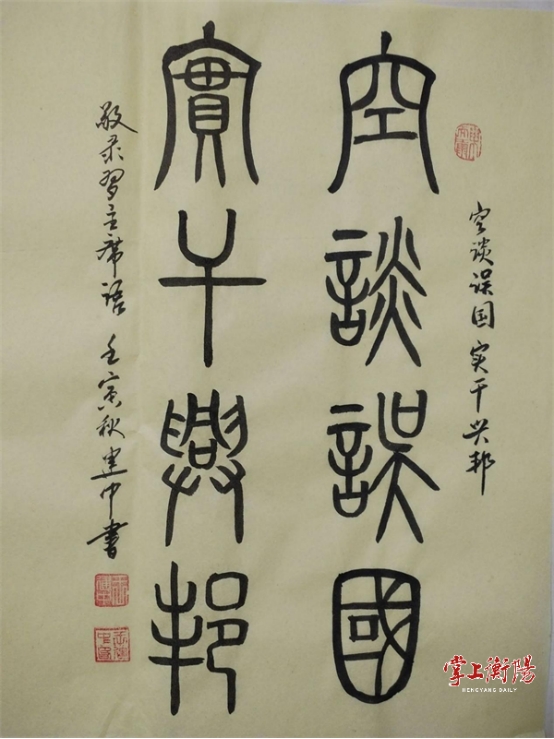 空谈误国 实干兴邦
空談誤國
實干興邦
敬录习主席语 壬寅秋 建中书
掌上衡陽
HENGYANG DAILY